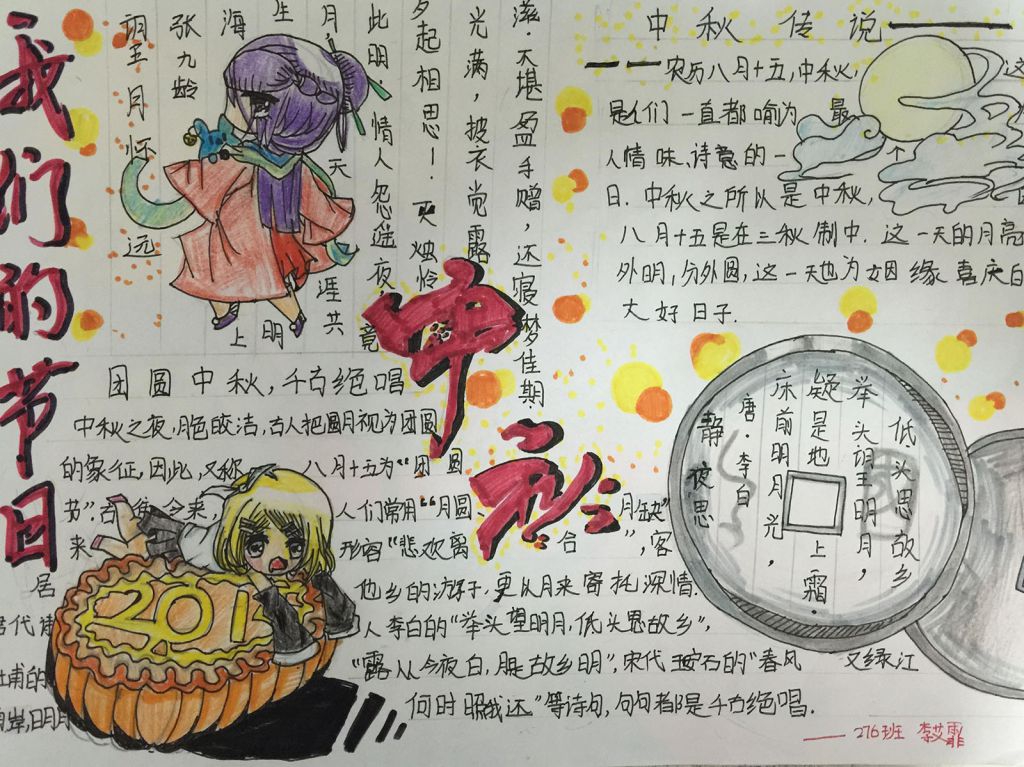 我们的节日
望月怀远
张九龄
海上
生明
月，天涯共
此明.情人怨遥夜，竟
夕起相思！灭烛怜
光满，披衣觉露
滋.不堪盈手赠，还寝梦佳期.
中秋
中秋传说
农历八月十五，中秋，这
是人们一直都喻为最
人情味、诗意的一
日.中秋之所以是中秋，
八月十五是在三秋制中.这一天的月亮
外明，分外圆，这一天也为姻缘喜庆白
大好日子.
团圆中秋，千古绝唱
中秋之夜，月色皎洁，古人把圆月视为团圆
的象征，因此，又称八月十五为“团圆
节”.古往今来，人们常用“月圆月缺”
来形容“悲欢离合”，客
居他乡的游子，更以月来寄托深情.
唐代人李白的“举头望明月，低头思故乡”，
杜甫的“露从今夜白，月是故乡明”，宋代王安石的“春风又绿江
南岸，明月何时照我还”等诗句，句句都是千古绝唱.
静夜思
唐·李白
床前明月光，
疑是地上霜.
举头望明月，
低头思故乡
201
276班 李艾霏